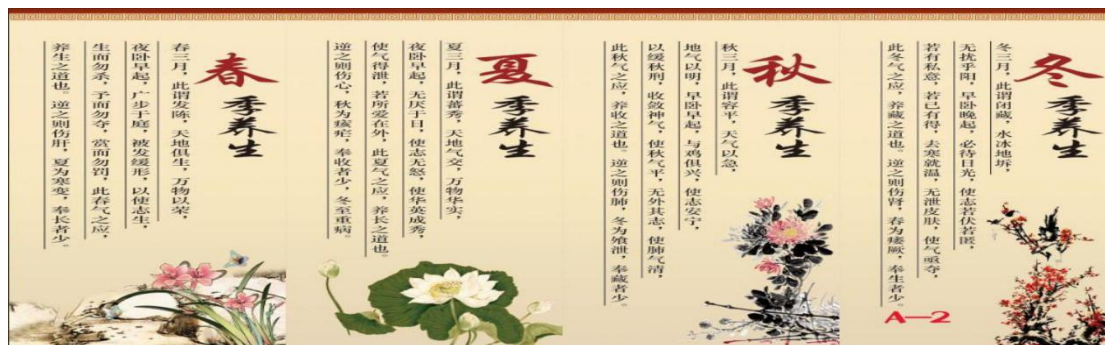 春季养生
春三月，此谓发陈，天地俱生，万物以荣，
夜卧早起，广步于庭，被发缓形，以使志生，
生而勿杀，予而勿夺，赏而勿罚，此春气之应，
养生之道也。逆之则伤肝，夏为寒变，奉长者少。
夏季养生
夏三月，此谓蕃秀，天地气交，万物华实，
夜卧早起，无厌于日，使志无怒，使华英成秀，
使气得泄，若所爱在外，此夏气之应，养长之道也。
逆之则伤心，秋为痎疟，奉收者少，冬至重病。
秋季养生
秋三月，此谓容平，天气以急，
地气以明，早卧早起，与鸡俱兴，使志安宁，
以缓秋刑，收敛神气，使秋气平，无外其志，使肺气清，
此秋气之应，养收之道也。逆之则伤肺，冬为飧泄，奉藏者少。
冬季养生
冬三月，此谓闭藏，水冰地坼，
无扰乎阳，早卧晚起，必待日光，使志若伏若匿，
若有私意，若已有得，去寒就温，无泄皮肤，使气亟夺，
此冬气之应，养藏之道也。逆之则伤肾，春为痿厥，奉生者少。
A-2